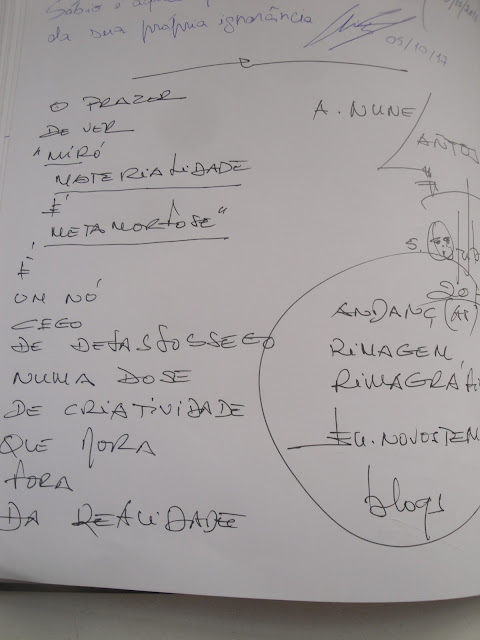 da sua própria ignorância
05/10/17
O PRAZER
DE VER
"MIRÓ
MATERIALIDADE
É
METAMORFOSE"
É
UM NÓ
CEGO
DE DESASSOSSEGO
NUMA DOSE
DE CRIATIVIDADE
QUE MORA
FORA
DA REALIDADE
A. NUNE
ANDANÇ(AS)
RIMAGEM,
RIMAGRÁF
EU. NOVOSTEM
blogs